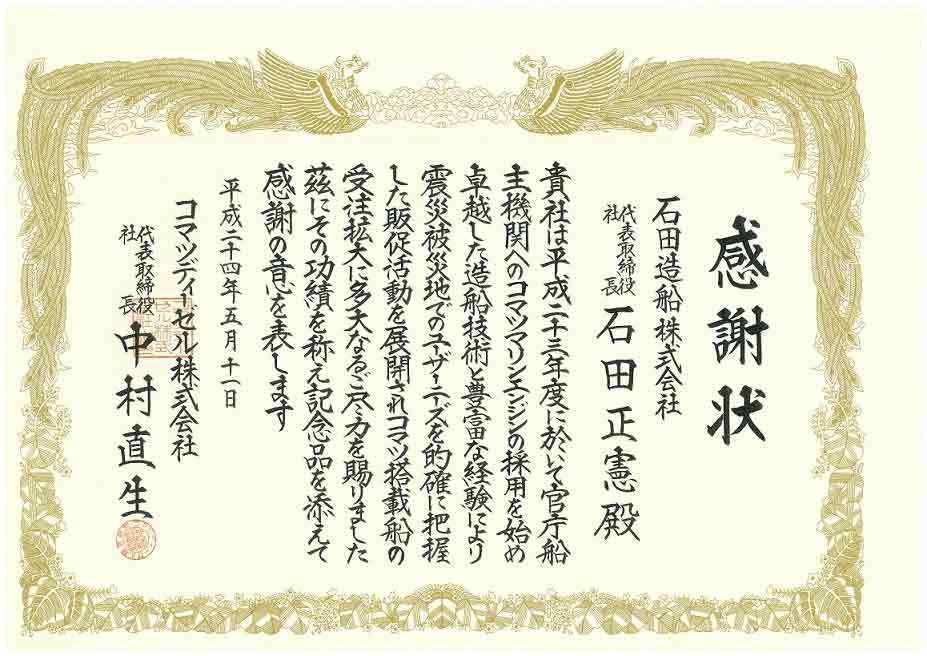 感謝状
石田造船株式会社
代表取締役
社長
石田正憲殿
貴社は平成二十三年度に於いて官庁船
主機関へのコマツマリンエンジンの採用を始め
卓越した造船技術と豊富な経験により
震災被災地でのユーザーニーズを的確に把握
した販促活動を展開されコマツ搭載船の
受注拡大に多大なるご尽力を賜りました
茲にその功績を称え記念品を添えて
感謝の意を表します
平成二十四年五月十一日
コマツディーゼル株式会社
代表取締役
社長
中村直生